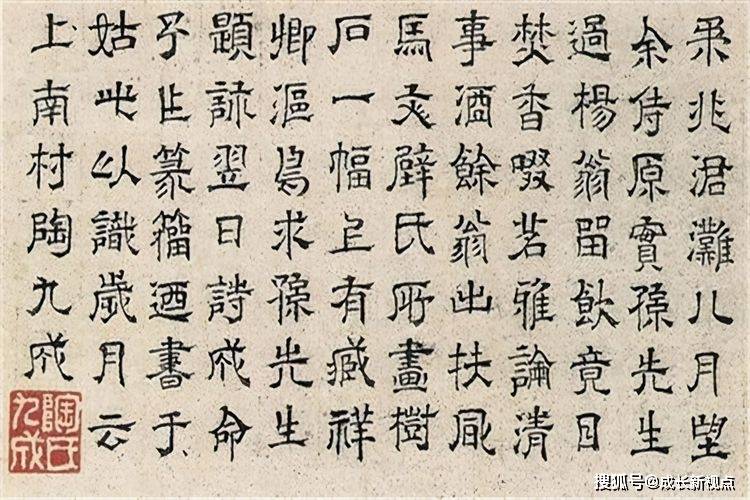 柔兆涒灘八月望
余侍原實孫先生
過楊翁留飲竟日
焚香啜茗雅論清
事酒餘翁出扶風
馬文璧氏所畫樹
石一幅上有臧祥
卿漚鳥求孫先生
題詠翌日詩成命
予作篆籀迺書于
姑此以識歲月云
上南村陶九成
陶氏九成
搜狐号@成长新视点